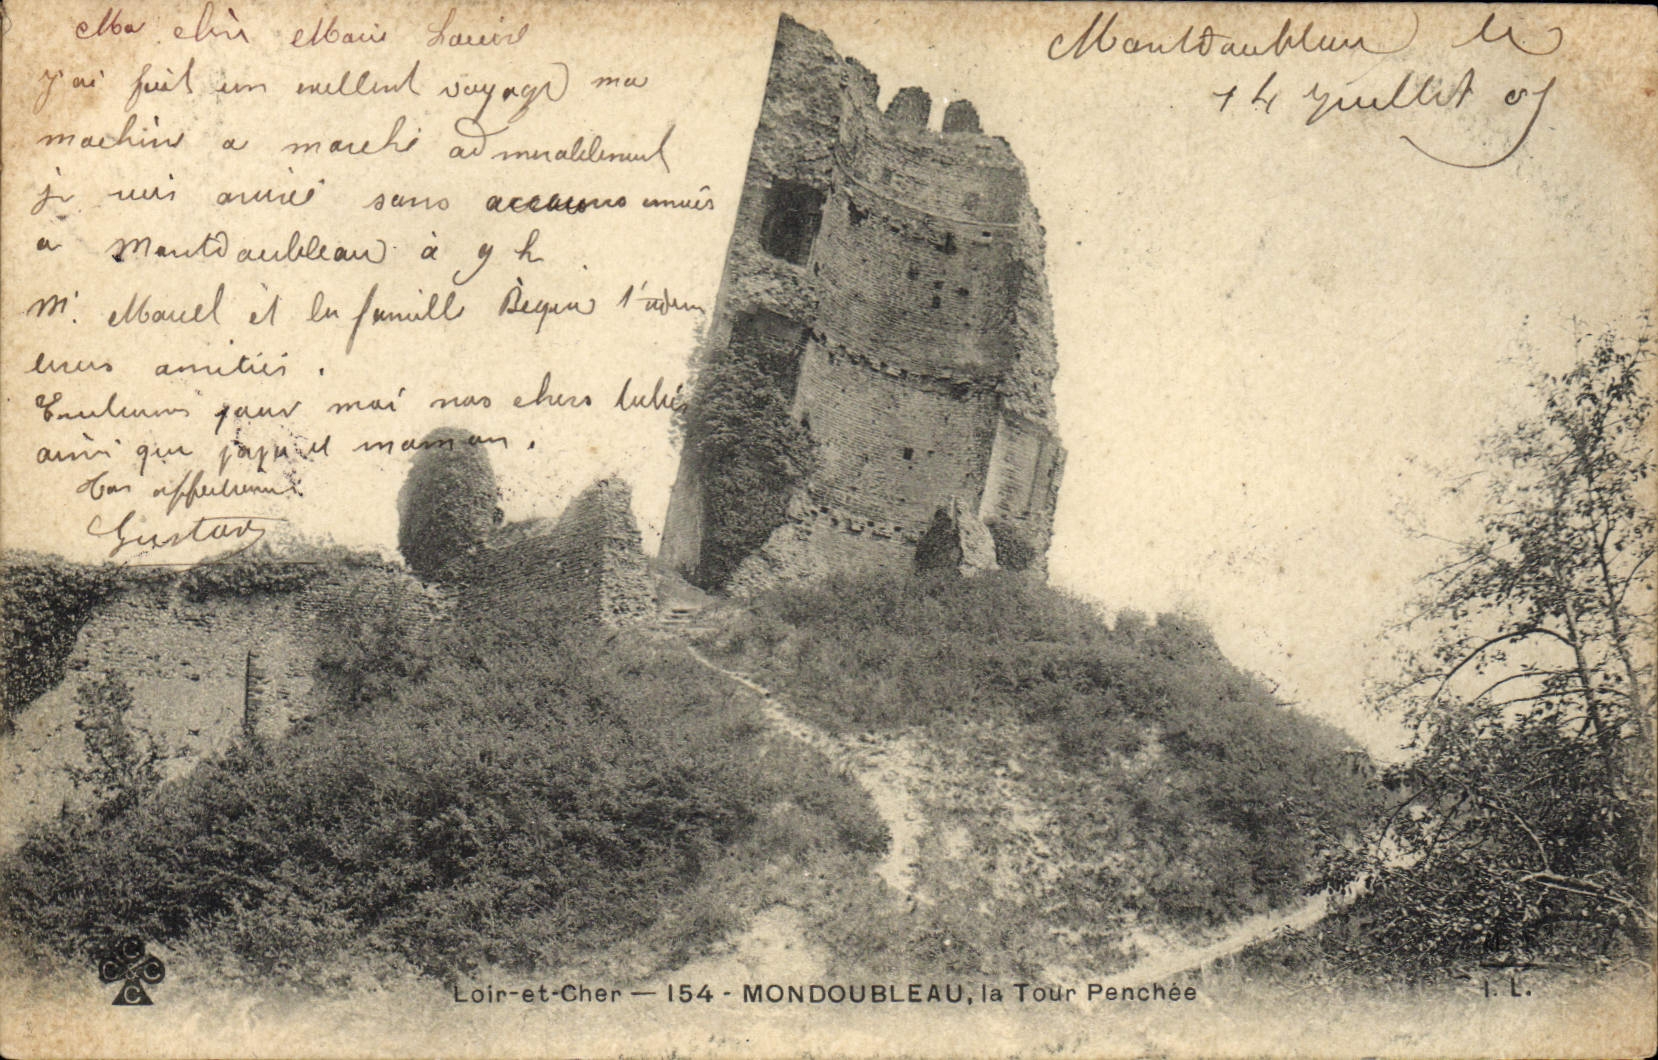 Montdoubleau le
14 Juillet 05
Ma chère Marie Louise
J'ai fait un excellent voyage ma
machine a marché admirablement
je suis arrivé sans ennuis
a Montdoubleau à 9 h
Mr. Marcel et la famille Bequin t'
leurs amitiés.
Embrasses pour moi nos chers bébés
ainsi que papa et maman.
Ton affectionné
Gustave
C C & C C
Loir-et-Cher — 154 - MONDOUBLEAU, la Tour Penchée
I. L.